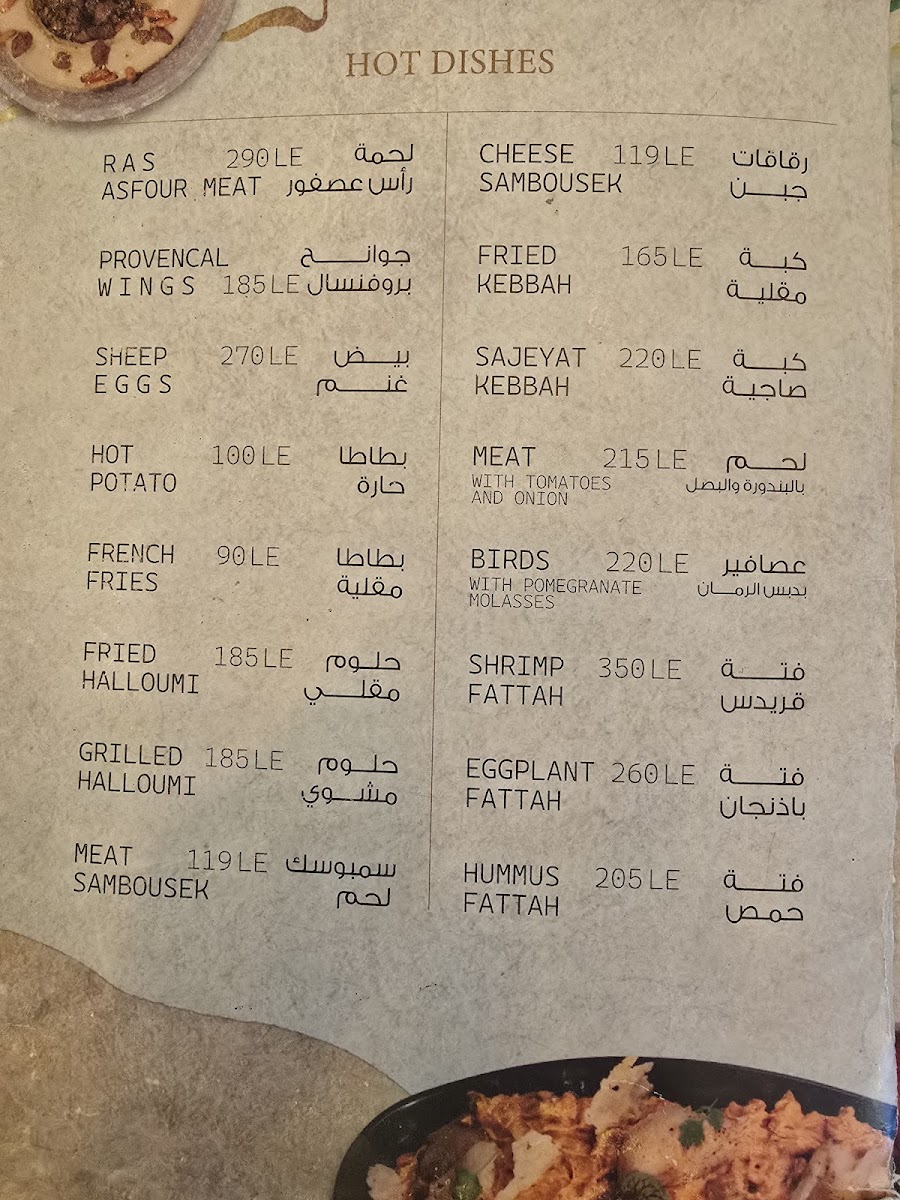 HOT DISHES
RAS 290 LE لحمة
ASFOUR MEAT رأس عصفور
PROVENCAL جوانح
WINGS 185 LE بروفنسال
SHEEP 270 LE بيض
EGGS غنم
HOT 100 LE بطاطا
POTATO حارة
FRENCH 90 LE بطاطا
FRIES مقلية
FRIED 185 LE حلوم
HALLOUMI مقلي
GRILLED 185 LE حلوم
HALLOUMI مشوي
MEAT 119 LE سمبوسك
SAMBOUSEK لحم
CHEESE 119 LE رقاقات
SAMBOUSEK جبن
FRIED 165 LE كبة
KEBBAH مقلية
SAJEYAT 220 LE كبة
KEBBAH صاجية
MEAT 215 LE لحم
WITH TOMATOES بالبندورة والبصل
AND ONION
BIRDS 220 LE عصافير
WITH POMEGRANATE بدبس الرمان
MOLASSES
SHRIMP 350 LE فتة
FATTAH قريدس
EGGPLANT 260 LE فتة
FATTAH باذنجان
HUMMUS 205 LE فتة
FATTAH حمص